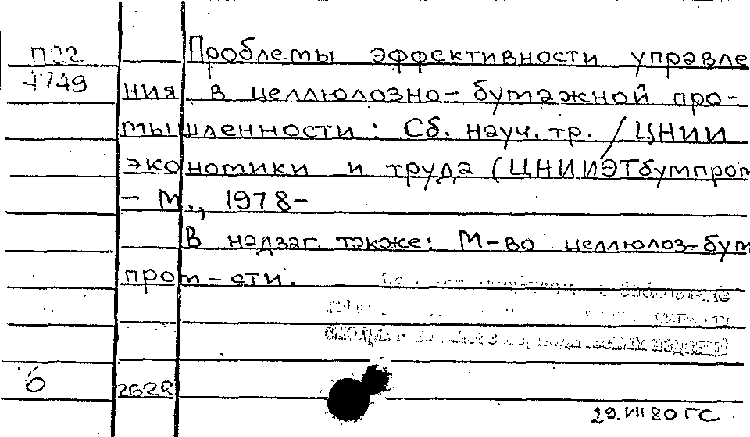 П22 Проблемы эффективности управле
1749 ния в целлюлозно-бумажной про-
мышленности: Сб. науч. тр. / ЦНИИ
экономики и труда (ЦНИИЭТбумпром
- М., 1978-
В надзаг. также: М-во целлюлоз-бум
пром-сти.
б 2622
29.VII 80 ГС